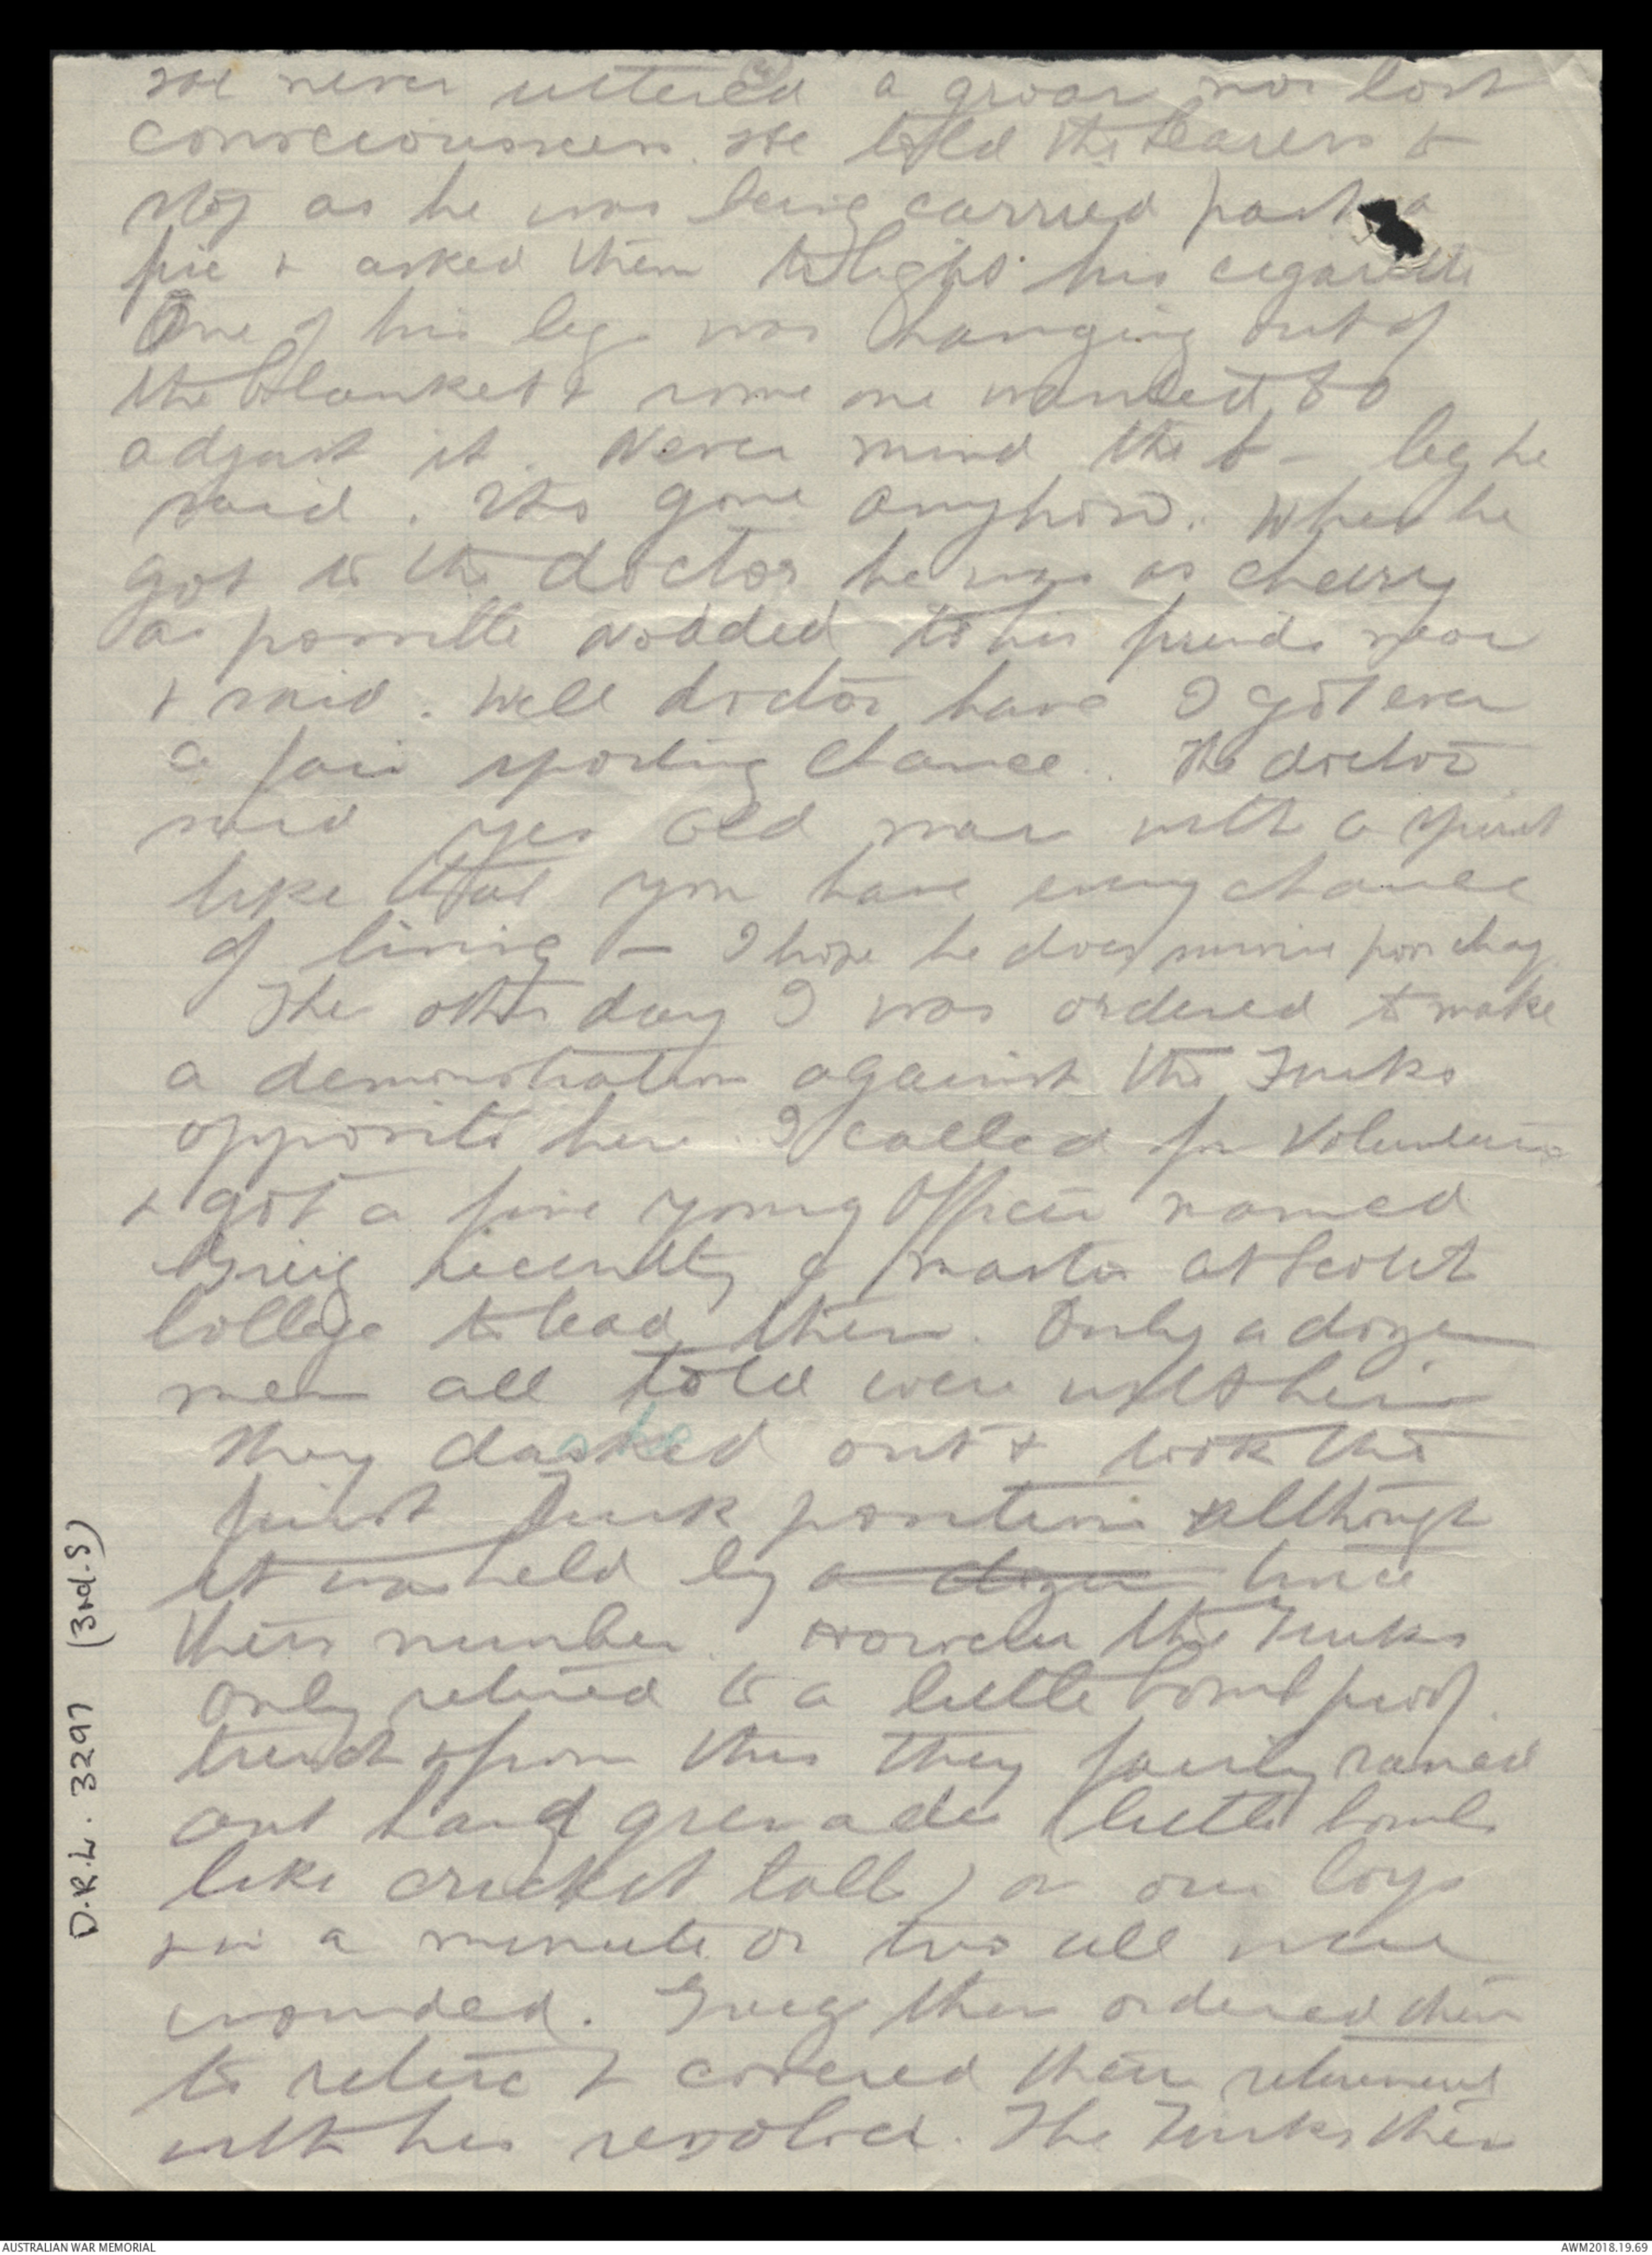 He never uttered a groan nor lost
consciousness. He told the bearers to
stop as he was being carried past a
fire & asked them to light his cigarette
One of his legs was hanging out of
the blanket & some one wanted to
adjust it. Never mind the b- leg he
said. Its gone anyhow. When he
got to the doctor he was as cheery
as possible nodded to his friends near
& said. Well doctor have I got even
a fair sporting chance. The doctor
said yes old man with a spirit
like that you have every chance
of living - I hope he does survive poor chap.
The other day I was ordered to make
a demonstration against the Turks
opposite here. I called for volunteers
& got a fine young Officer named
Greig recently a master at Scotch
College to lead them. Only a dozen
men all told were with him
They dashed out & took the
first Turk position although
it was held by a dozen twice
their number. However the Turks
only retired to a little bomb proof
trench & from this they fairly rained
out hand grenades (little bombs
like cricket balls) on our boys
& in a minute or two all were
wounded. Greig then ordered them
to retire & covered their retirement
with his revolver. The Turks then
D.R.L. 3297 (3rd.S)
AUSTRALIAN WAR MEMORIAL
AWM2018.19.69